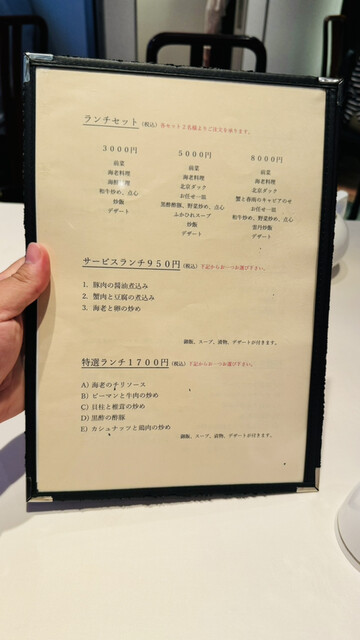 ランチセット (税込) 各セット2名様よりご注文を承ります。
3000円
前菜
海老料理
海鮮料理
和牛炒め、点心
炒飯
デザート
5000円
前菜
海老料理
北京ダック
お任せ一皿
黒酢酢豚、野菜炒め、点心
ふかひれスープ
炒飯
デザート
8000円
前菜
海老料理
北京ダック
蟹と春雨のキャビアのせ
お任せ一皿
和牛炒め、野菜炒め、点心
炒飯
デザート
サービスランチ950円 (税込) 下記からお一つお選び下さい。
1. 豚肉の醤油煮込み
2. 蟹肉と豆腐の煮込み
3. 海老と卵の炒め
御飯、スープ、漬物、デザートが付きます。
特選ランチ1700円 (税込) 下記からお一つお選び下さい。
A) 海老のチリソース
B) ピーマンと牛肉の炒め
C) 貝柱と椎茸の炒め
D) 黒酢の酢豚
E) カシュナッツと鶏肉の炒め
御飯、スープ、漬物、デザートが付きます。